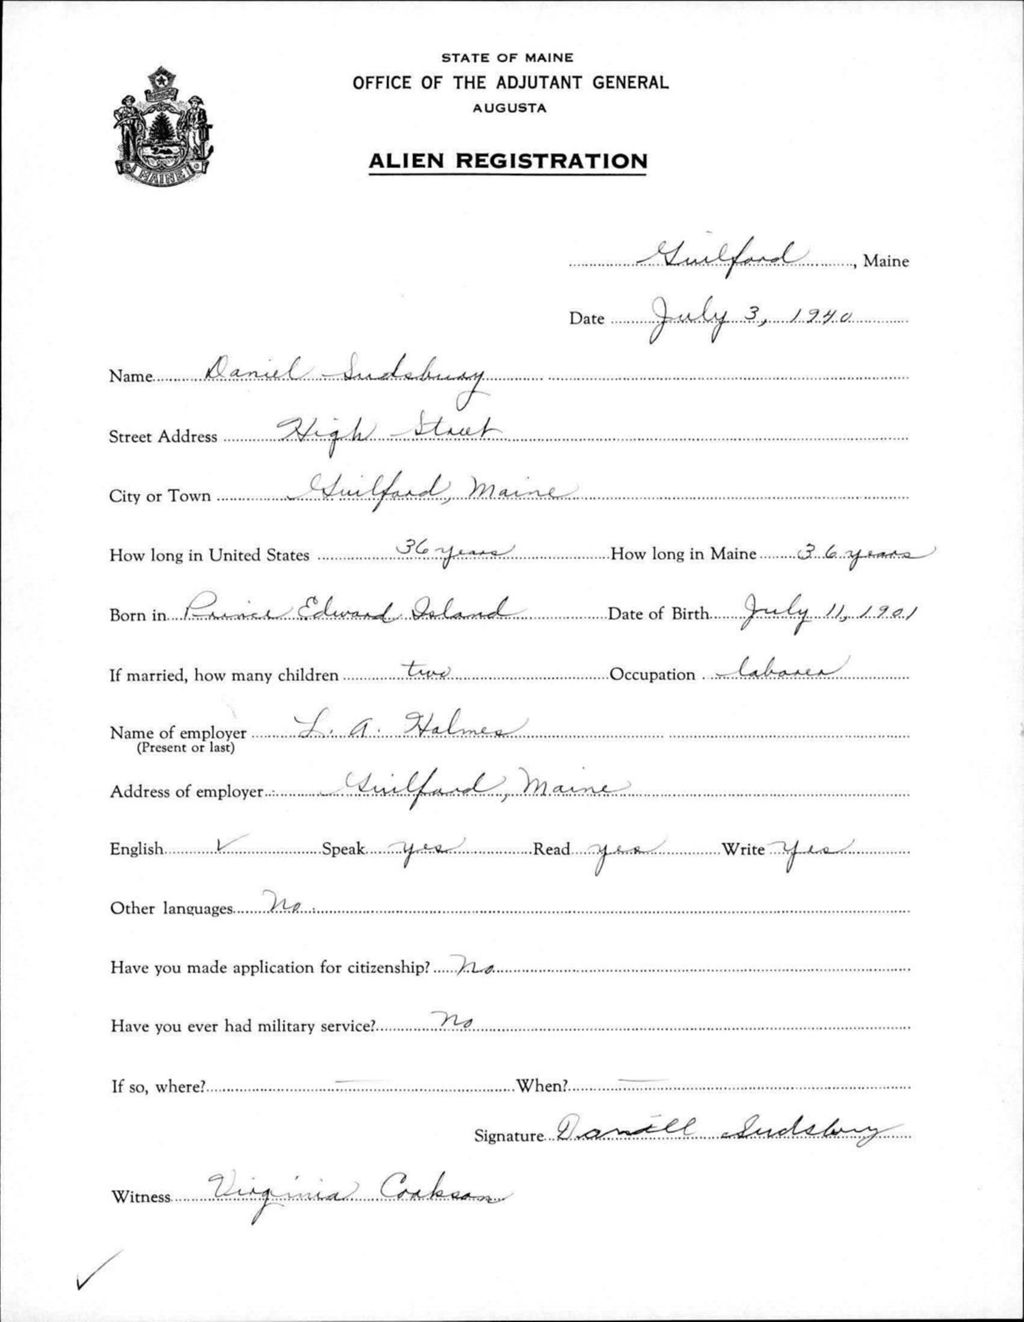 STATE OF MAINE
OFFICE OF THE ADJUTANT GENERAL
AUGUSTA
ALIEN REGISTRATION
MAINE
Guilford, Maine
Date July 3, 1940
Name Daniel Sudsbury
Street Address High Street
City or Town Guilford, Maine
How long in United States 36 years How long in Maine 36 years
Born in Prince Edward Island Date of Birth July 11, 1901
If married, how many children two Occupation laborer
Name of employer L. A. Holmes
(Present or last)
Address of employer Guilford, Maine
English ✓ Speak yes Read yes Write Yes
Other languages No.
Have you made application for citizenship? No
Have you ever had military service? No
If so, where? — When? —
Signature Daniell Sudsbury
Witness Virginia Cookson
✓